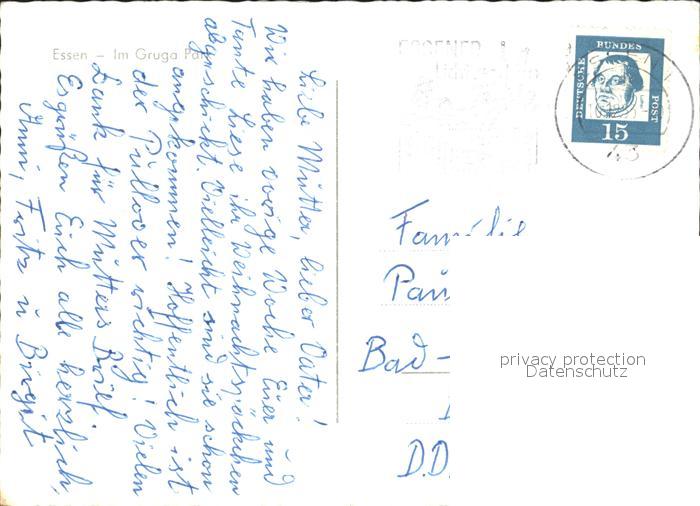 Essen – Im Gruga Park
Liebe Mutter, lieber Vater!
Wir haben vorige Woche Euer und
Tante Liese ihr Weihnachtspäckchen
abgeschickt. Vielleicht sind sie schon
angekommen! Hoffentlich ist
der Pullover richtig! Vielen
Dank für Mutters Brief
Es grüßen Euch alle herzlich,
Anni, Fritz u Birgit
ESSENER
DEUTSCHE
BUNDES
POST
15
43
Familie
Pau
Bad-
D.D.
privacy protection
Datenschutz